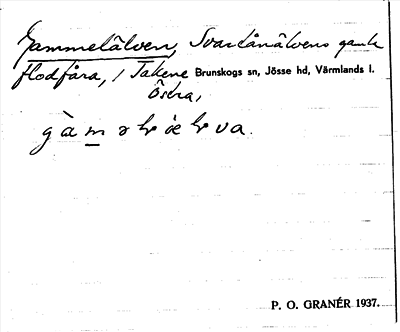 Gammelälven, Svartånälvens gamla
flodfåra, i Takene Brunskogs sn, Jösse hd, Värmlands l.
Östra,
P. O. GRANÉR 1937.